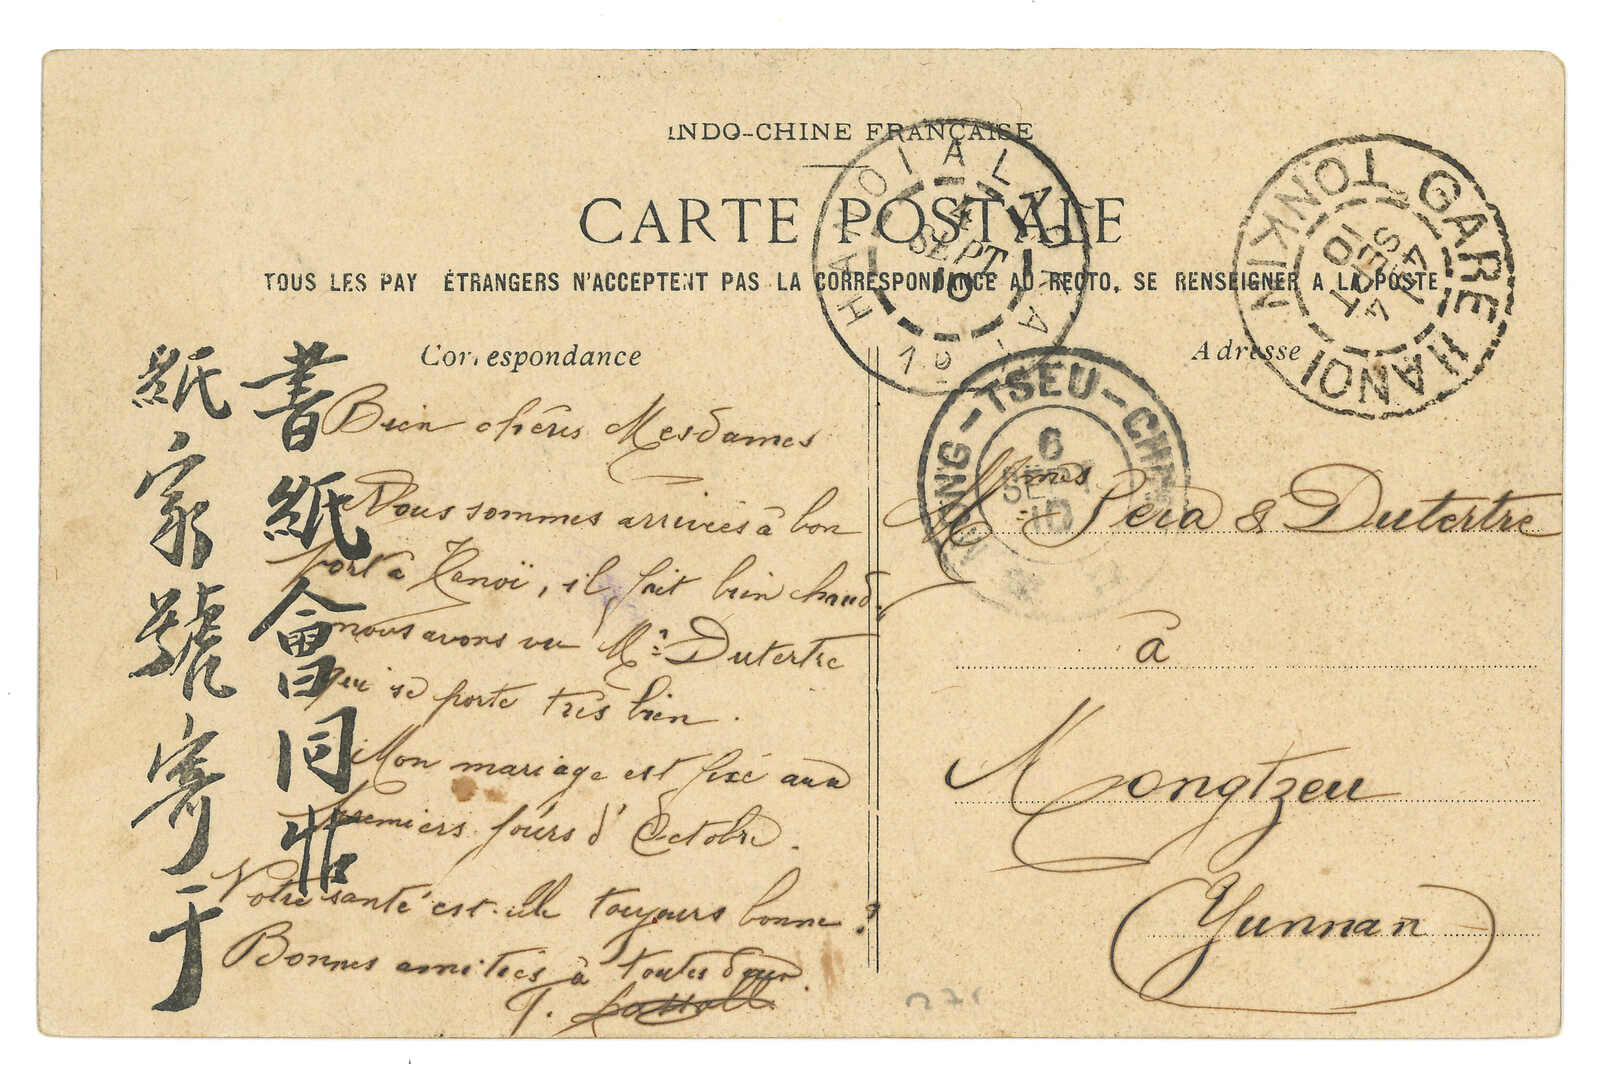 INDO-CHINE FRANÇAISE
CARTE POSTALE
TOUS LES PAY ÉTRANGERS N'ACCEPTENT PAS LA CORRESPONDANCE AU RECTO, SE RENSEIGNER A LA POSTE
HANOI A LAO-KAY
4
SEPT
10
GARE HANOI TONKIN
4
SEPT
10
MONG-TSEU-CHINE
6
SEPT
10
Correspondance
Bien chères Mesdames
Nous sommes arrivées à bon
port à Hanoï, il fait bien chaud.
nous avons vu Mr Dutertre
qui se porte très bien.
Mon mariage est fixé aux
premiers jours d'Octobre.
Votre santé est-elle toujours bonne?
Bonnes amitiés à toutes deux.
Adresse
Mmes Pera & Dutertre
à
Mongtzeu
Yunnan
書紙會同
紙家號寄于